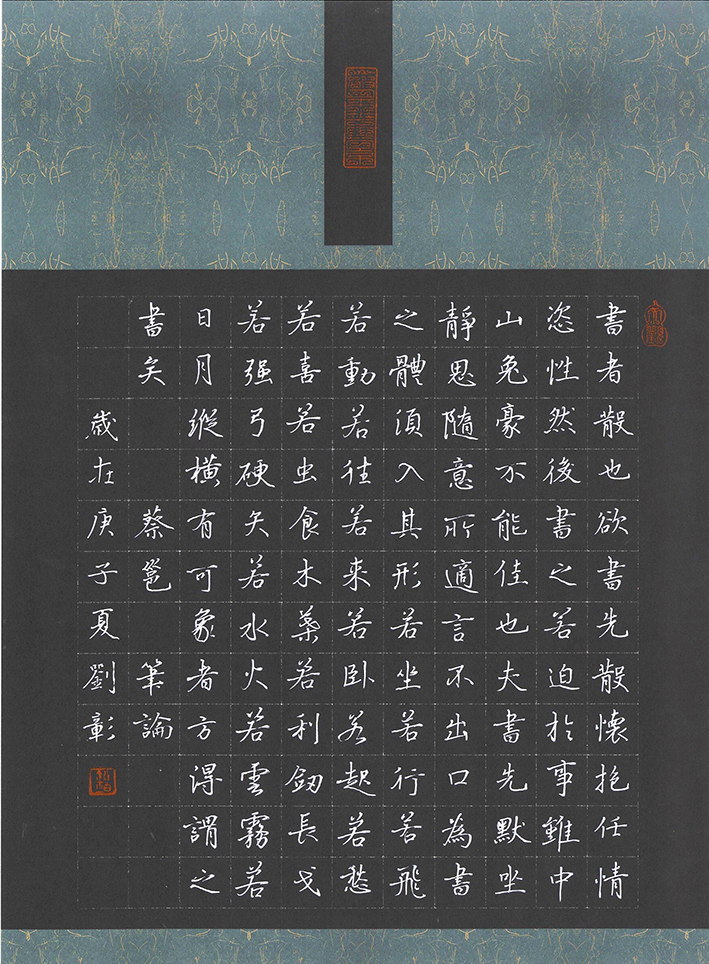 書者散也欲書先散懷抱任情
恣性然後書之若迫於事雖中
山兔豪不能佳也夫書先默坐
靜思隨意所適言不出口為書
之體須入其形若坐若行若飛
若動若往若來若卧若起若愁
若喜若虫食木葉若利劒長戈
若强弓硬矢若水火若雲霧若
日月縱橫有可象者方得謂之
書矣
蔡邕
筆論
歲在庚子夏劉彰